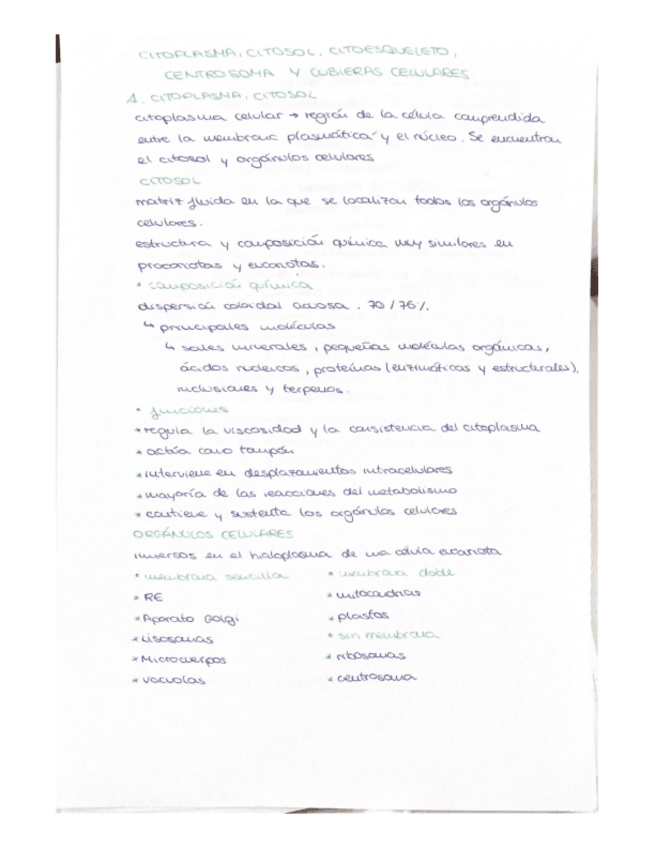 CITOPLASMA, CITOSOL, CITOESQUELETO,
CENTROSOMA Y CUBIERAS CELULARES
1. CITOPLASMA, CITOSOL
citoplasma celular → región de la célula comprendida
entre la membrana plasmática y el núcleo. Se encuentran
el citosol y orgánulos celulares
CITOSOL
matriz fluida en la que se localizan todos los orgánulos
celulares.
estructura y composición química muy similares en
procariotas y eucariotas.
* composición química
dispersión coloidal acuosa. 70/76%.
↳ principales moléculas
↳ sales minerales, pequeñas moléculas orgánicas,
ácidos nucleicos, proteínas (enzimáticas y estructurales),
inclusiones y terpenos.
* funciones
* regula la viscosidad y la consistencia del citoplasma
* actúa como tampón
* interviene en desplazamientos intracelulares
* mayoría de las reacciones del metabolismo
* contiene y sustenta los orgánulos celulares
ORGÁNULOS CELULARES
inmersos en el hialoplasma de una célula eucariota
* membrana sencilla
* RE
* Aparato Golgi
* Lisosomas
* Microcuerpos
* vacuolas
* membrana doble
* mitocondrias
* plastos
* sin membrana
* ribosomas
* centrosoma